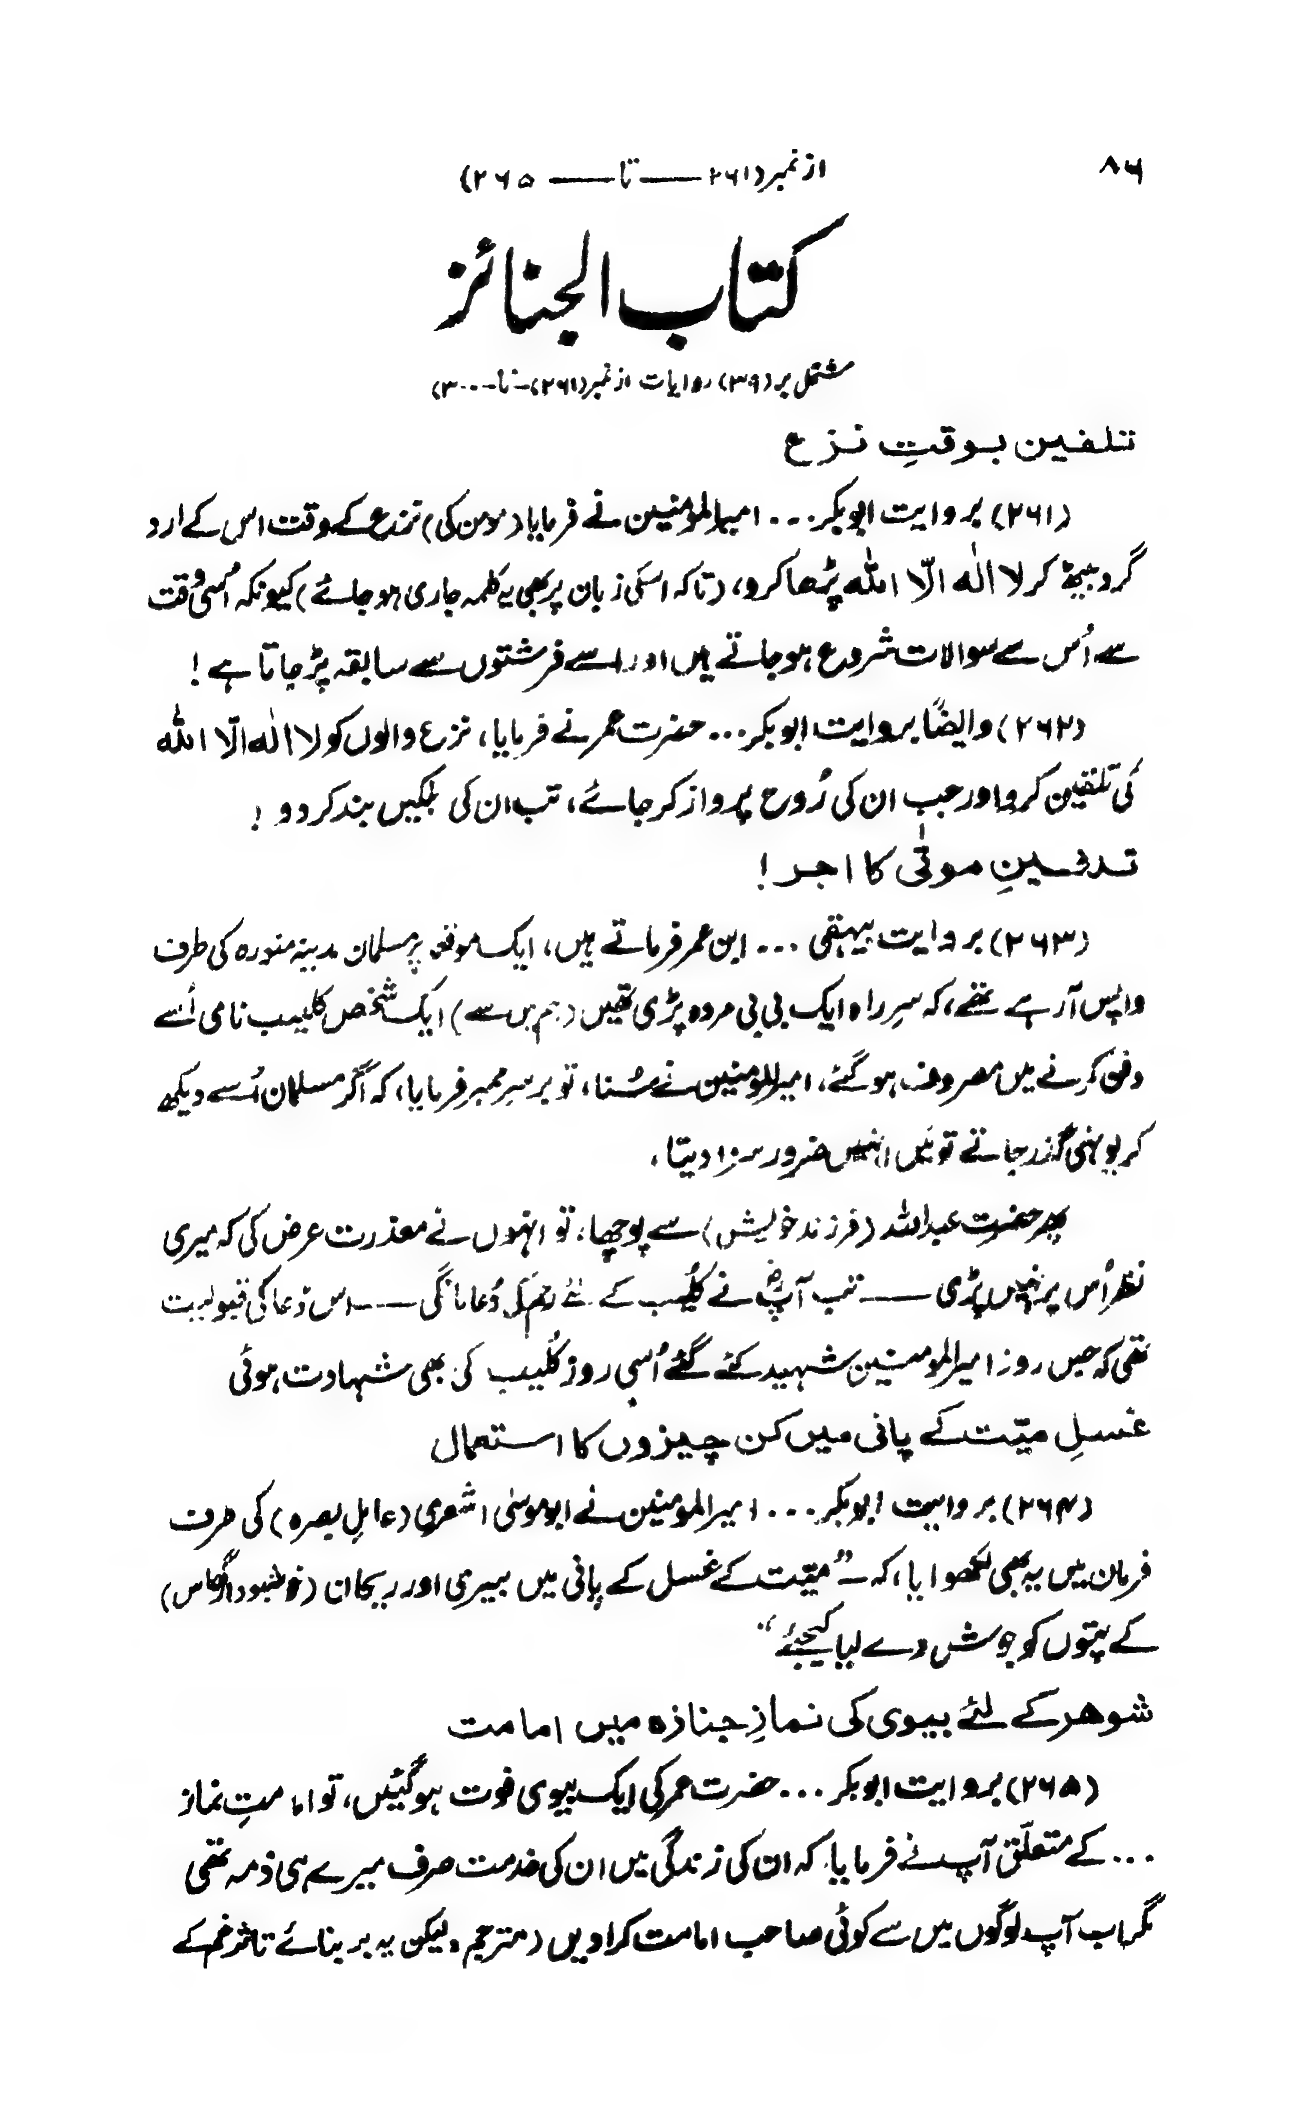 ۸۶
از نمبر (۲۶۱ ——تا—— ۲۶۵)
کتاب الجنائز
مشتمل بر (۳۹) روایات از نمبر (۲۶۱)-تا-۳۰۰)
تلقین بوقتِ نزع
(۲۶۱) بروایت ابوبکر... امیرالمؤمنین نے فرمایا (مومن کی) نزع کے وقت اس کے ارد
گرد بیٹھ کر لا الٰہ الّا اللہ پڑھا کرو، (تاکہ اسکی زبان پر بھی یہ کلمہ جاری ہو جائے) کیونکہ اُسی وقت
سے اُس سے سوالات شروع ہو جاتے ہیں اور اسے فرشتوں سے سابقہ پڑ جاتا ہے!
(۲۶۲) وایضًا بروایت ابوبکر... حضرت عمر نے فرمایا، نزع والوں کو لا الٰہ الّا اللہ
کی تلقین کرو اور جب ان کی رُوح پرواز کر جائے، تب ان کی پلکیں بند کر دو!
تدفینِ موتٰی کا اجر!
(۲۶۳) بروایت بیہقی ... ابن عمر فرماتے ہیں، ایک موقعہ پر مسلمان مدینہ منورہ کی طرف
واپس آ رہے تھے، کہ سرِ راہ ایک بی بی مردہ پڑی تھیں (ہم میں سے) ایک شخص کلیب نامی اُسے
دفن کرنے میں مصروف ہو گئے، امیرالمؤمنین نے سُنا، تو برسرِ ممبر فرمایا، کہ اگر مسلمان اُسے دیکھ
کر یونہی گذر جاتے تو میں انہیں ضرور سزا دیتا،
پھر حضرت عبداللہ (فرزند خویش) سے پوچھا، تو انہوں نے معذرت عرض کی کہ میری
نظر اُس پر نہیں پڑی —— تب آپؓ نے کُلیب کے لئے رحم کی دُعا مانگی —— اس دُعا کی قبولیت
تھی کہ جس روز امیرالمومنین شہید کئے گئے اُسی روز کُلیب کی بھی شہادت ہوئی
غسلِ میّت کے پانی میں کن چیزوں کا استعمال
(۲۶۴) بروایت ابوبکر... امیرالمؤمنین نے ابوموسٰی اشعری (عاملِ بصرہ) کی طرف
فرمان میں یہ بھی لکھوایا، کہ -”میّت کے غسل کے پانی میں بیری اور ریحان (خوشبودار گھاس)
کے پتوں کو جوش دے لیا کیجئے“
شوہر کے لئے بیوی کی نمازِ جنازہ میں امامت
(۲۶۵) بروایت ابوبکر ... حضرت عمر کی ایک بیوی فوت ہو گئیں، تو امامتِ نماز
... کے متعلّق آپ نے فرمایا کہ ان کی زندگی میں ان کی خدمت صرف میرے ہی ذمہ تھی
مگر اب آپ لوگوں میں سے کوئی صاحب امامت کرا دیں (مترجم، لیکن یہ بر بنائے تاثر غم کے